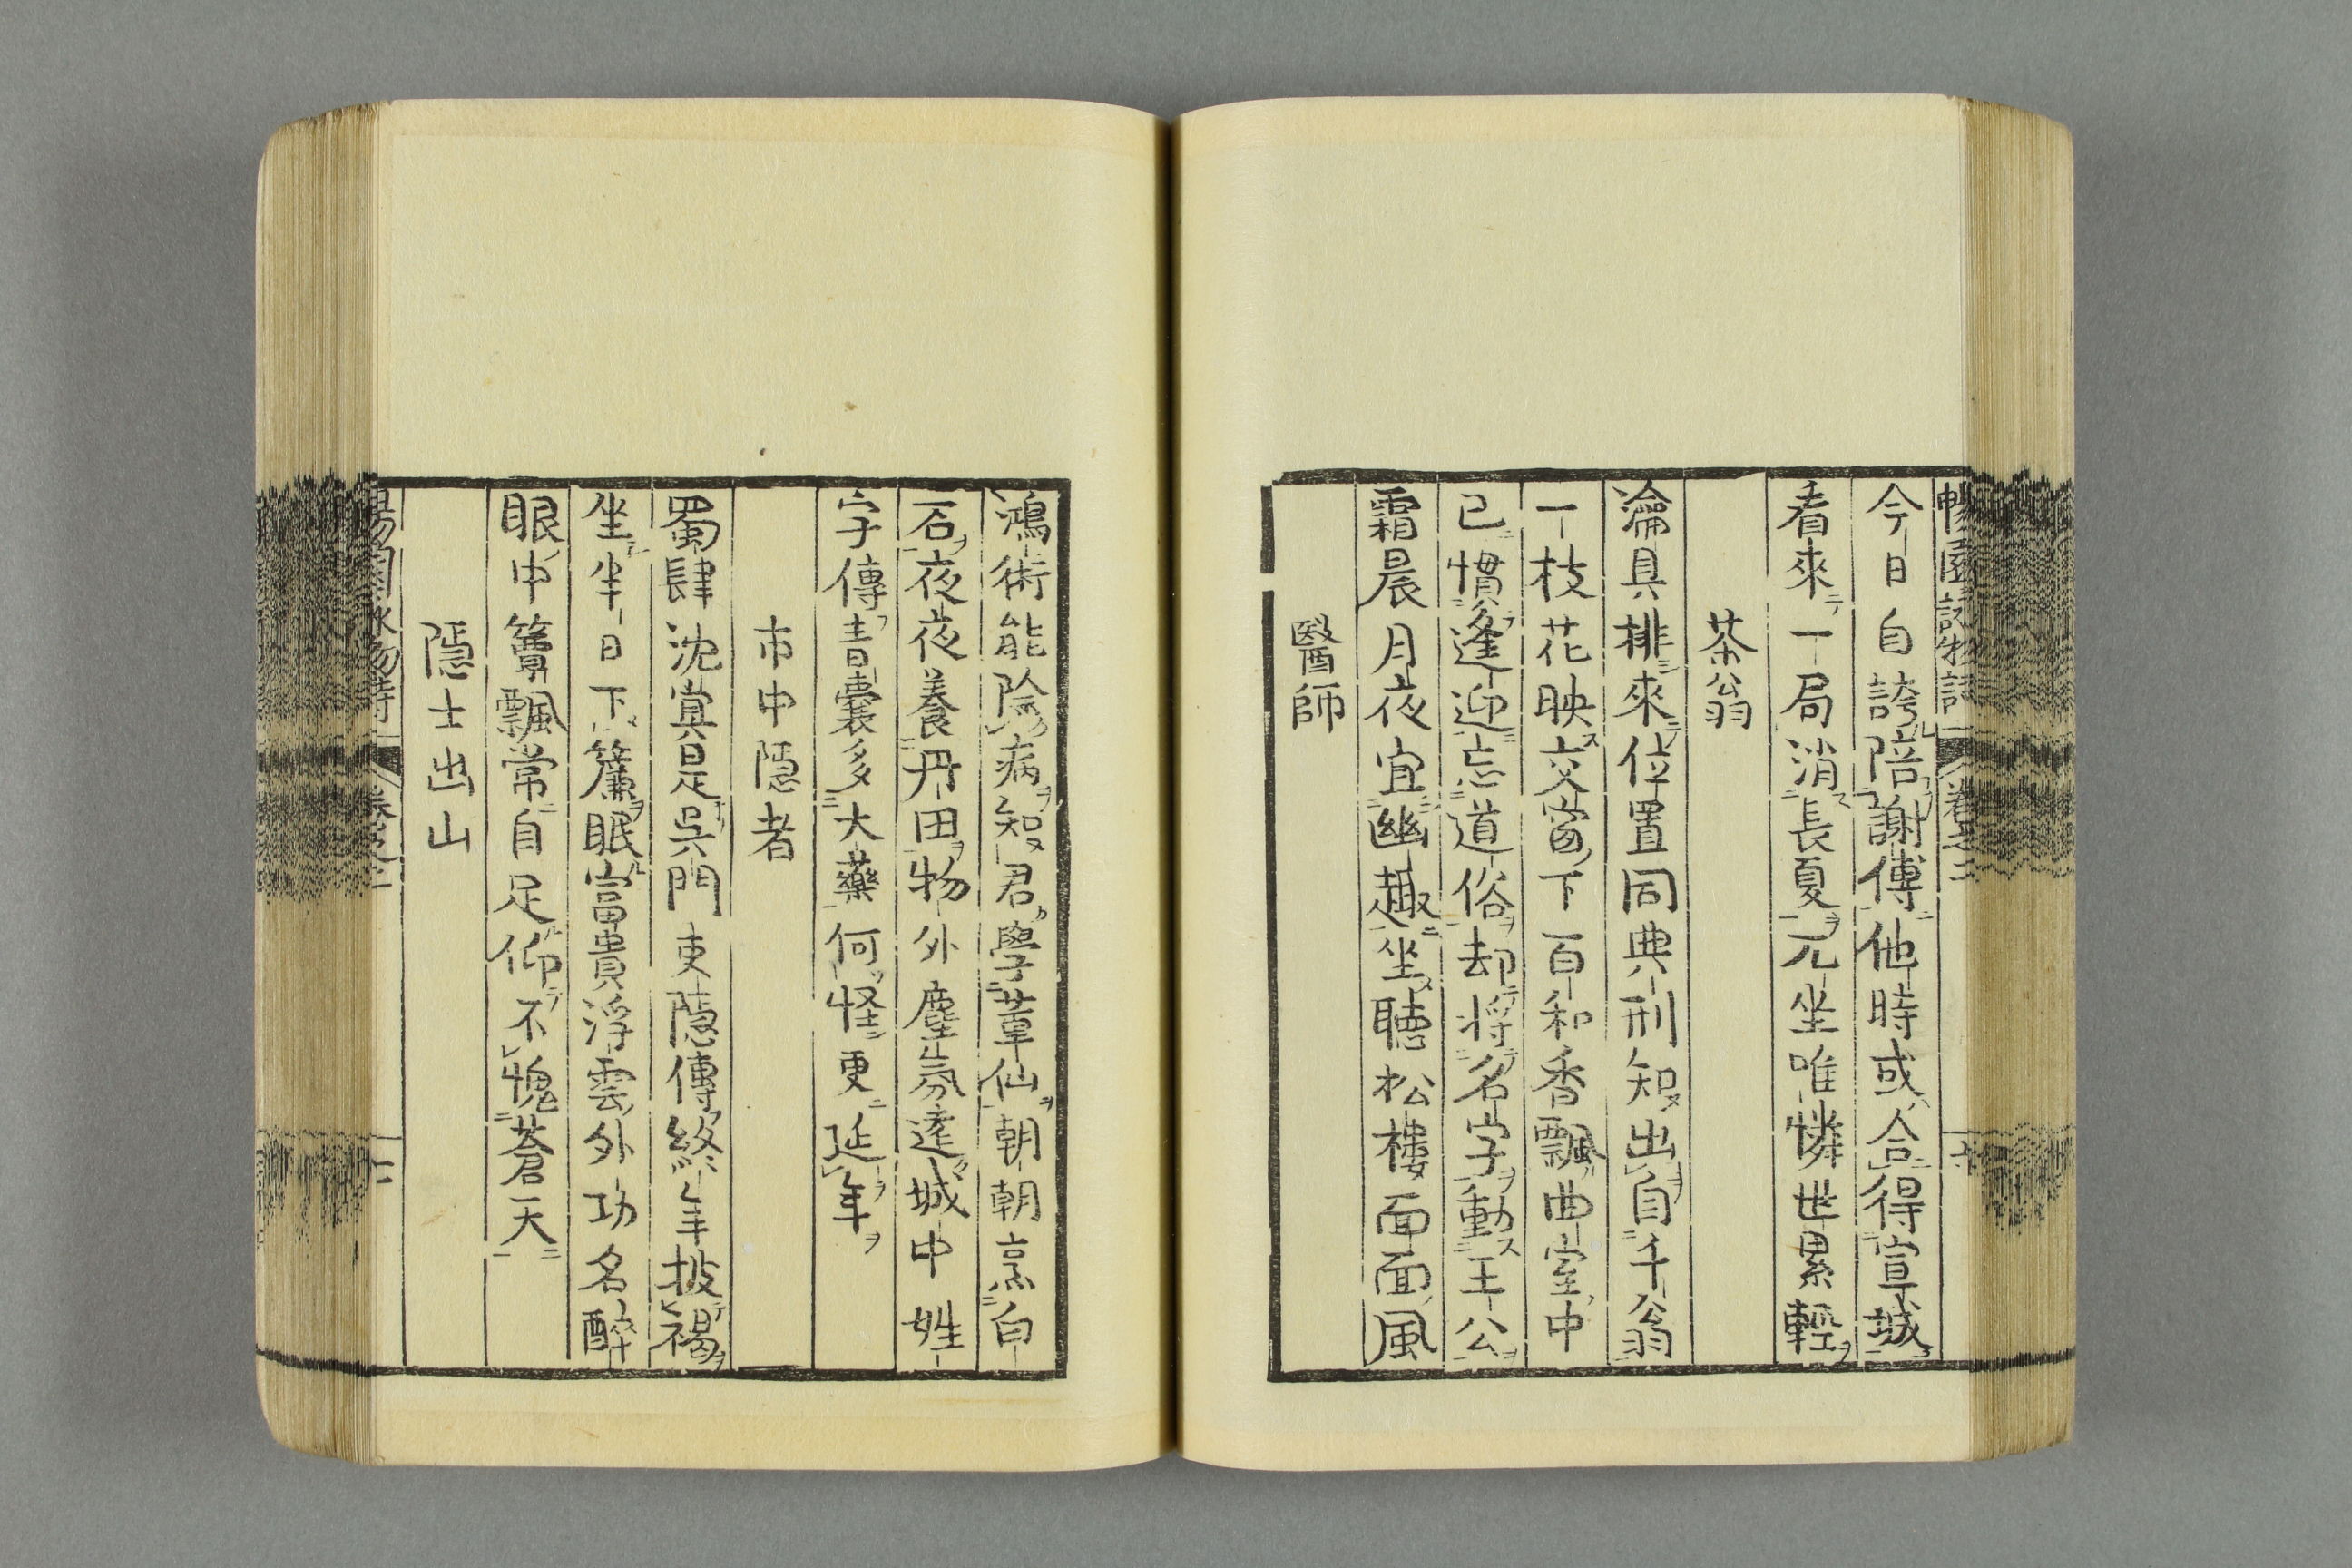 今日自誇陪謝傅他時或合得宣城
看來一局消長夏兀坐唯憐世累輕
茶翁
瀹具排來位置同典刑知出自千翁
一枝花映交窗下百和香飄曲室中
已慣逢迎忘道俗却將名字動王公
霜晨月夜宜幽趣坐聽松樓面面風
醫師
鴻術能除病知君學董仙朝朝烹白
石夜夜養丹田物外塵氛遠城中姓
字傳靑囊多大藥何怪更延年
市中隱者
蜀肆沈冥是吳門吏隱傳終年披褐
坐半日下簾眠富貴浮雲外功名醉
眼中簞瓢常自足仰不愧蒼天
隱士出山